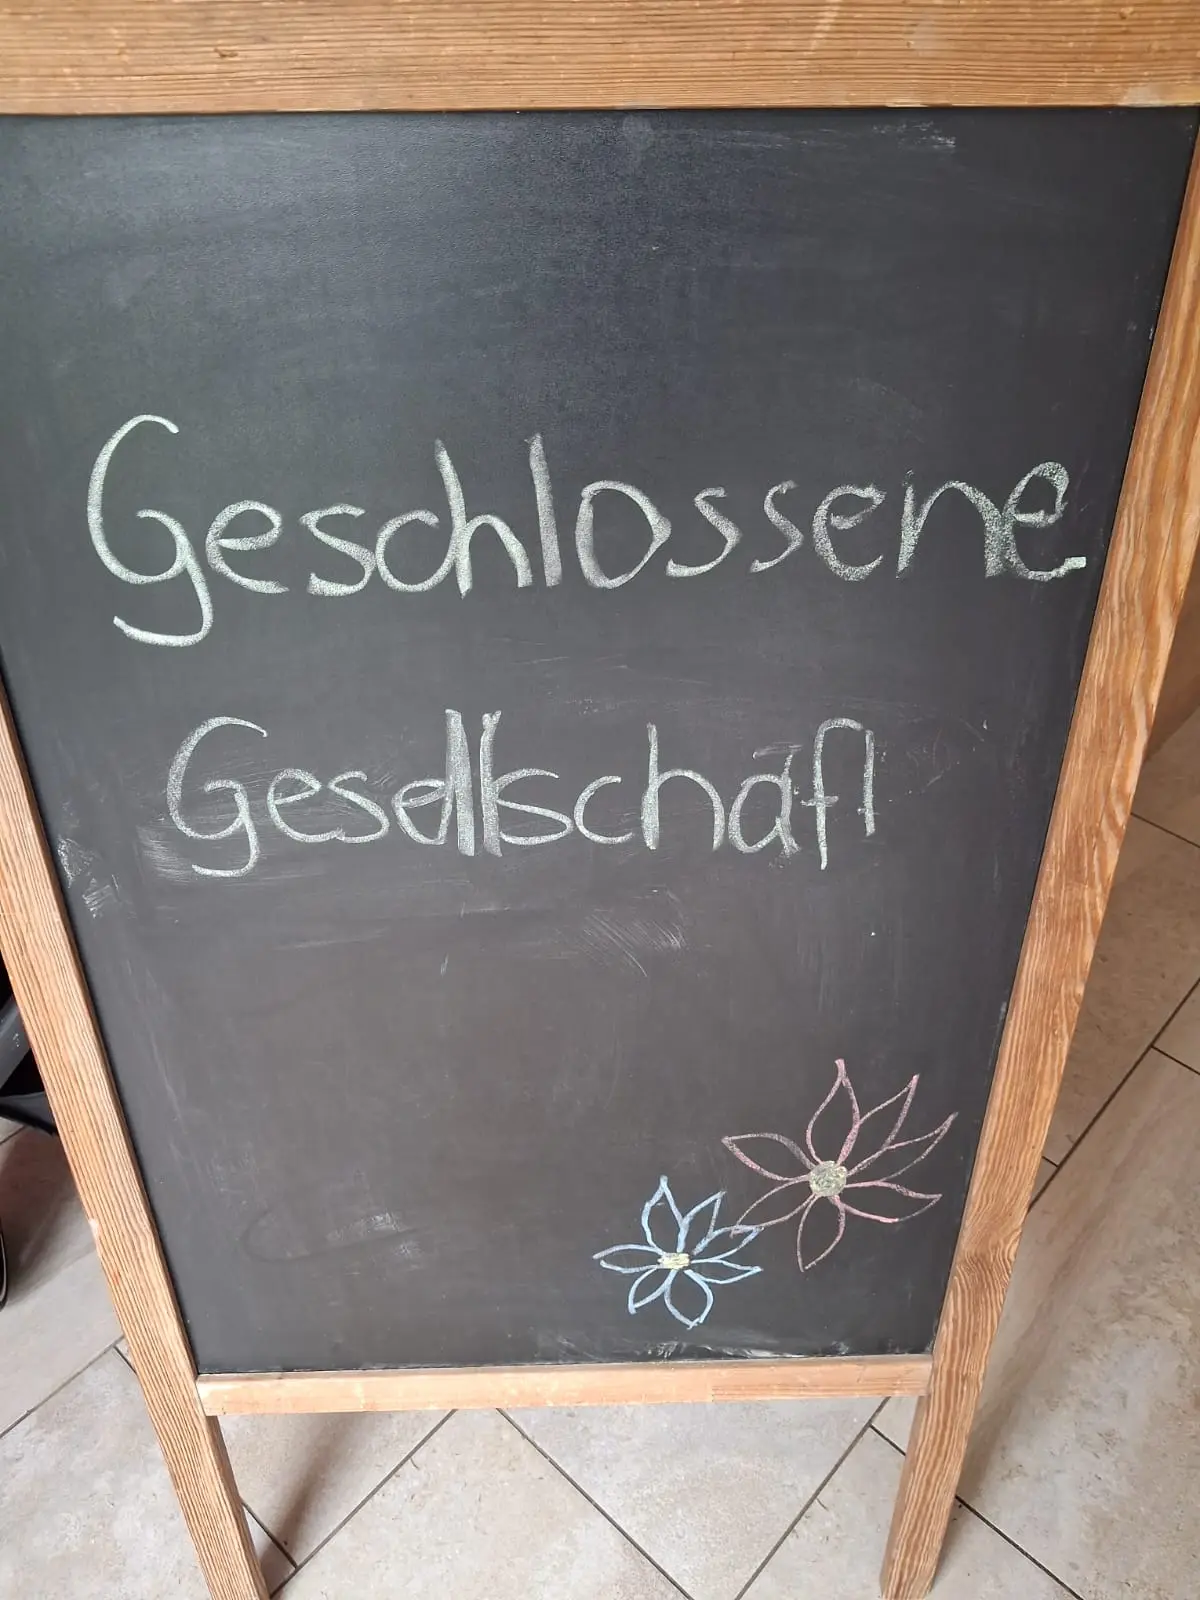 Geschlossene
Gesellschaft